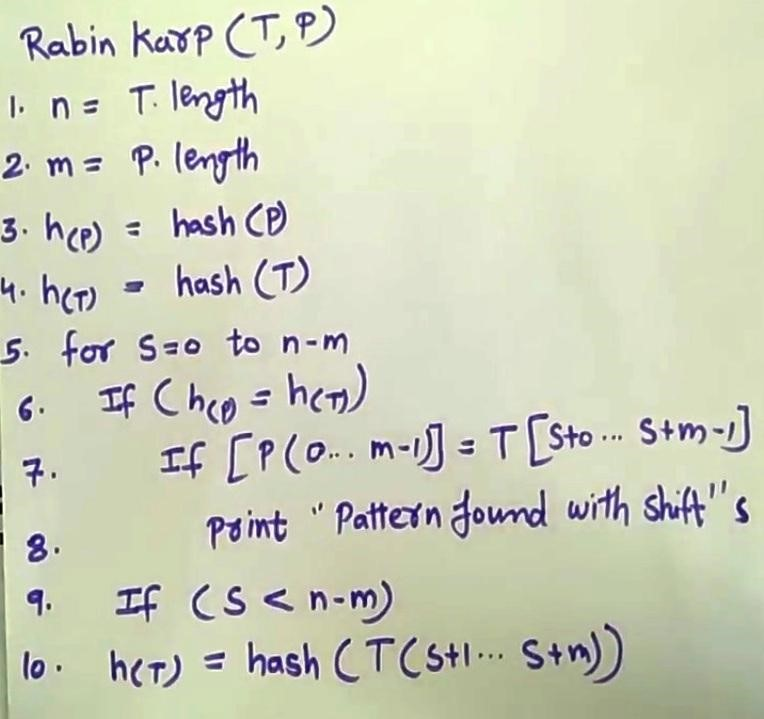 Rabin Karp (T, P)
1. n = T. length
2. m = P. length
3. h(P) = hash (P)
4. h(T) = hash (T)
5. for S=0 to n-m
6. If (h(P) = h(T))
7. If [P(0... m-1)] = T[S+0... S+m-1]
8. Print "Pattern found with shift" s
9. If (S < n-m)
10. h(T) = hash (T(S+1... S+m))